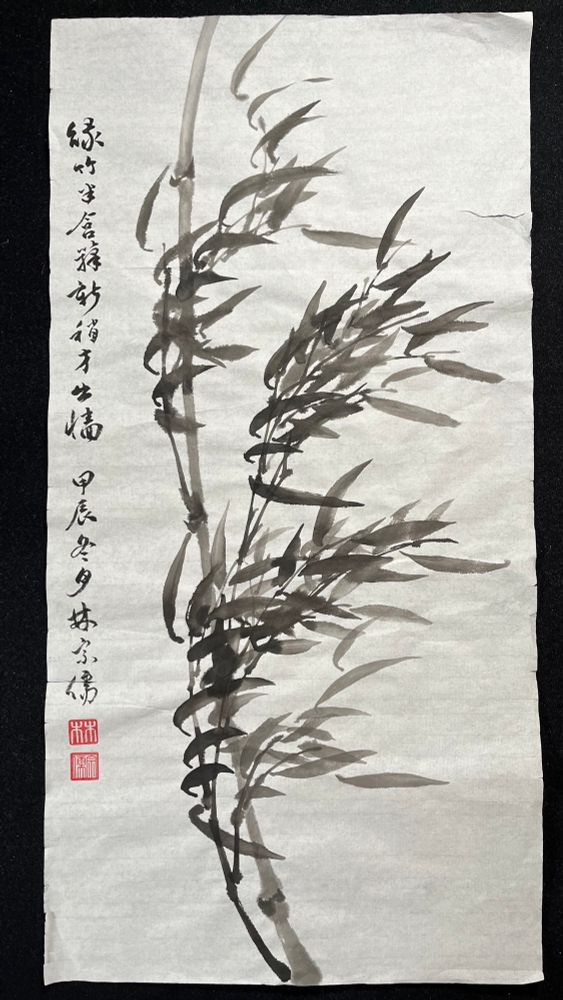 綠竹半含籜新梢才出墻 甲辰冬夕林宗儒
林
宗儒